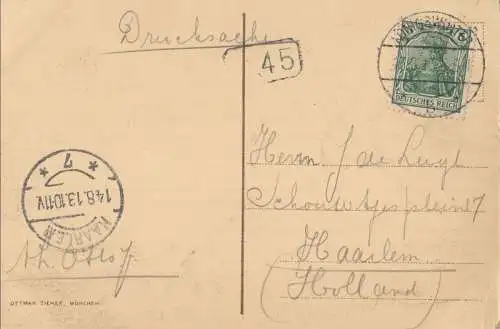 Drucksache
45
DEUTSCHES REICH
Herrn J de Luyt
Schouwtjesplein 7
Haarlem
(Holland)
HAARLEM
14.8.13.10-11V.
* 7 *
OTTMAR ZIEHER, MÜNCHEN.